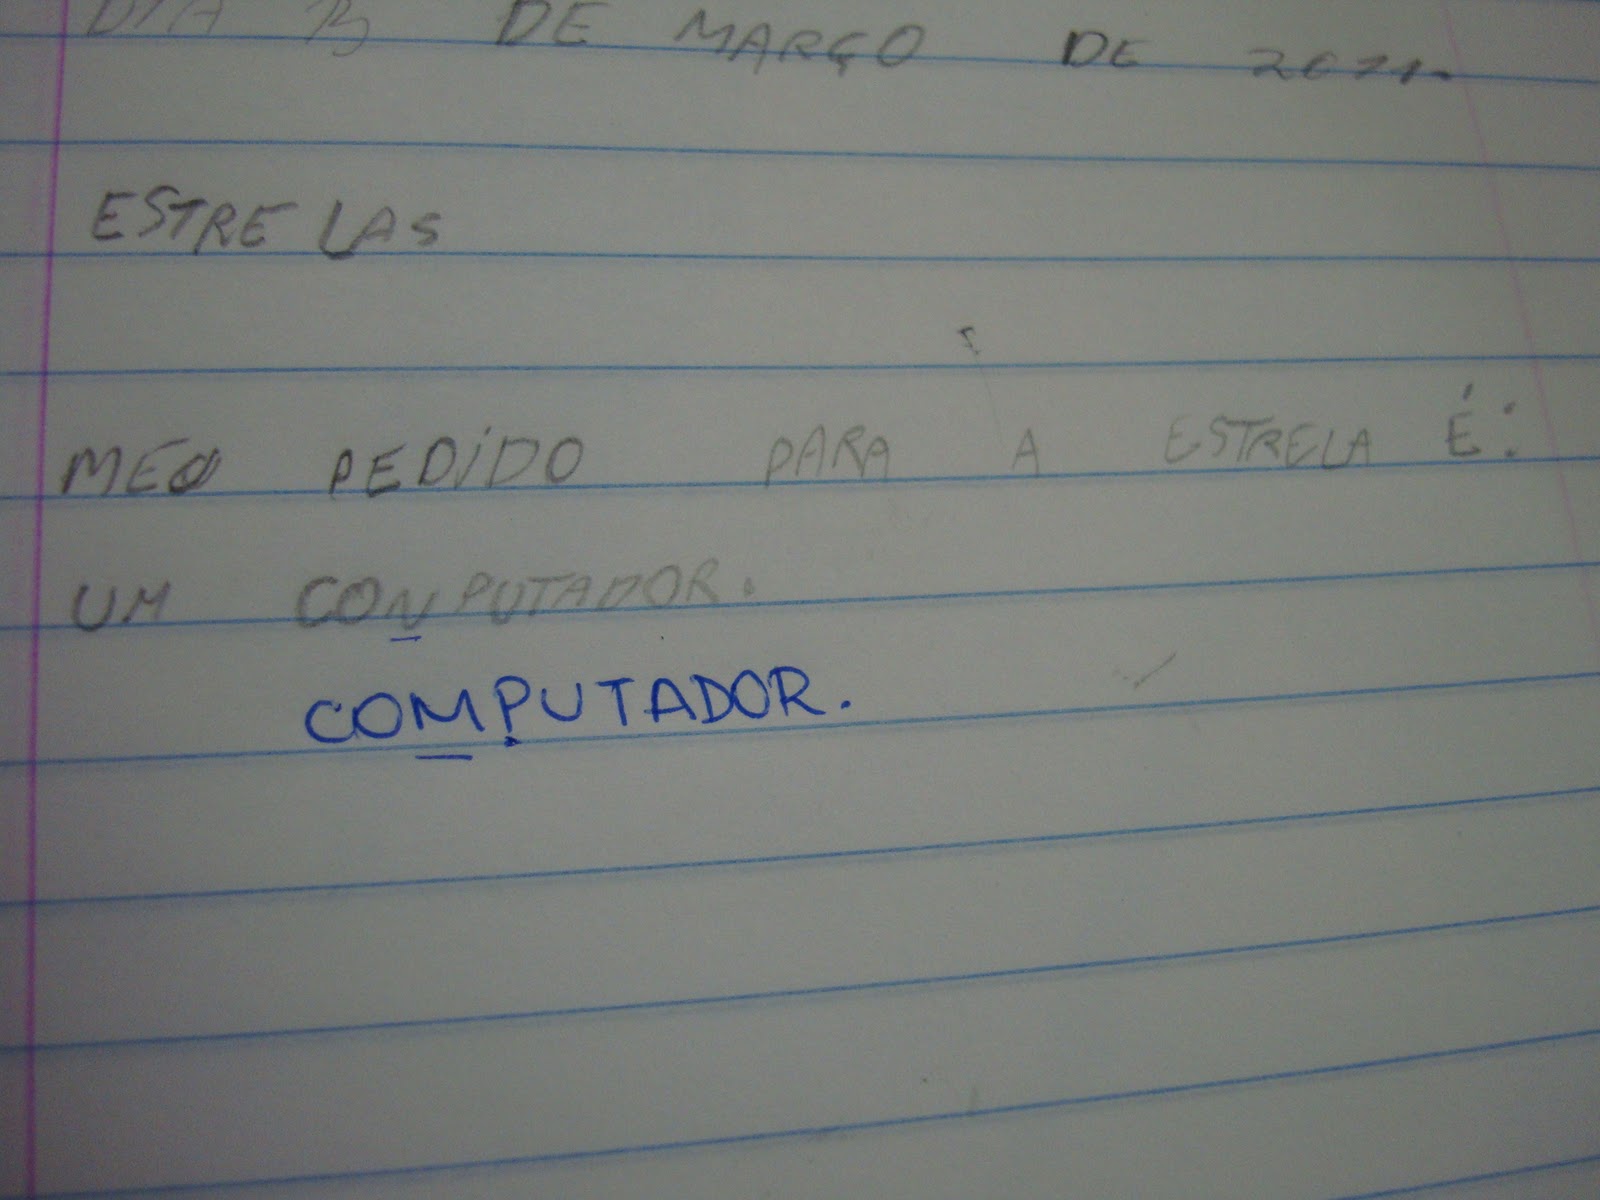 DIA DE MARÇO DE
ESTRELAS
MEO PEDIDO PARA A ESTRELA É:
UM CONPUTADOR.
COMPUTADOR.